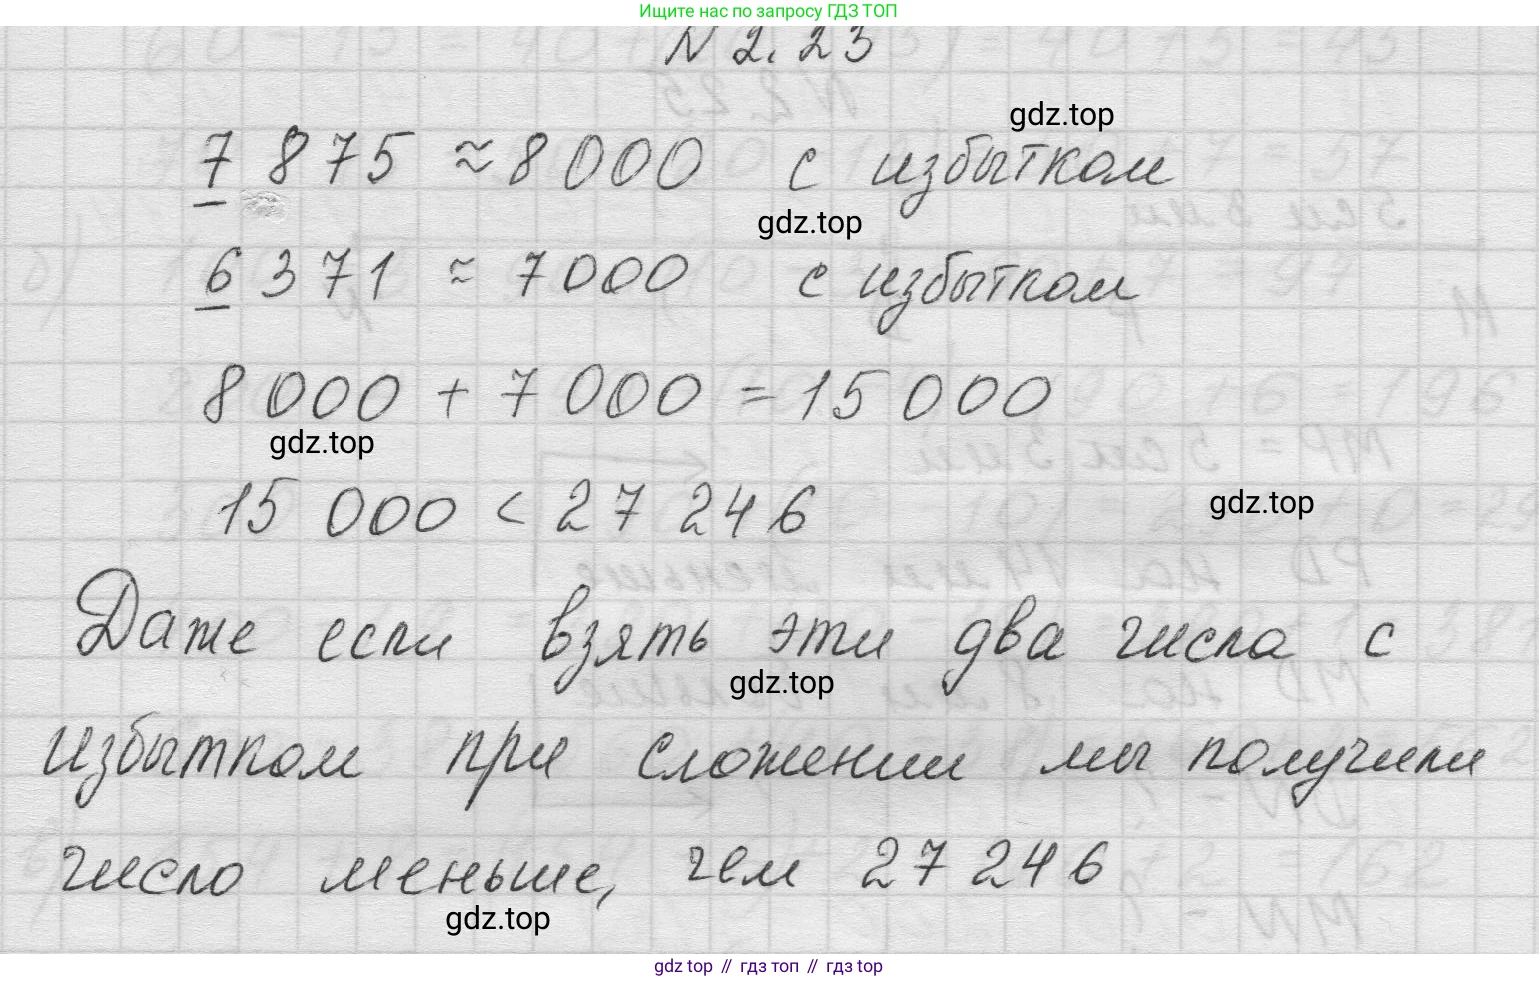 Ищите нас по запросу ГДЗ ТОП
N 2.23
gdz.top
7 875 ≈ 8 000 с избытком
gdz.top
6 371 ≈ 7 000 с избытком
8 000 + 7 000 = 15 000
gdz.top
15 000 < 27 246
gdz.top
Даже если взять эти два числа с
gdz.top
избытком при сложении мы получили
число меньше, чем 27 246
gdz.top
gdz top // гдз топ // gdz.top